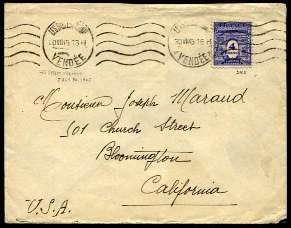 VENDÉE
VENDÉE
Monsieur Joseph Maraud
101 Church Street
Bloomington
California
U.S.A.